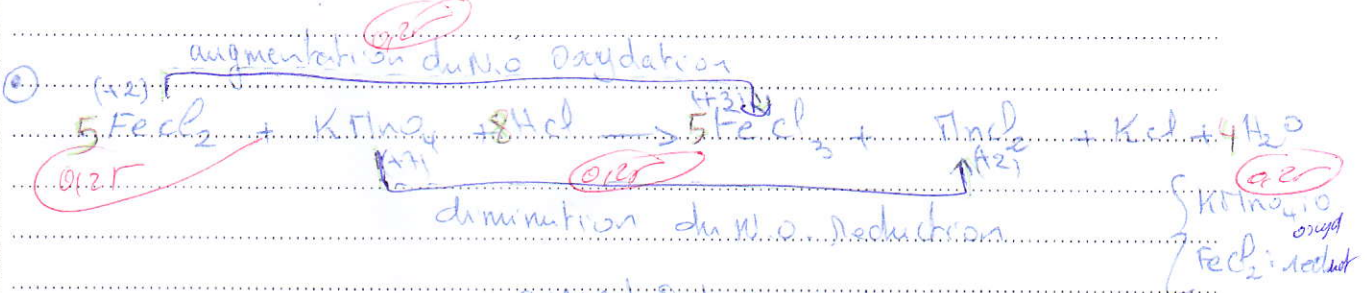 0,25
augmentation du N.O Oxydation
e. (+2) (+3)
5 FeCl2 + KMnO4 + 8HCl → 5FeCl3 + MnCl2 + KCl + 4H2O
0,25 (+7) 0,25 (+2) 0,25
diminution du N.O. Reduction
{ KMnO4: oxyd
FeCl2: reduct